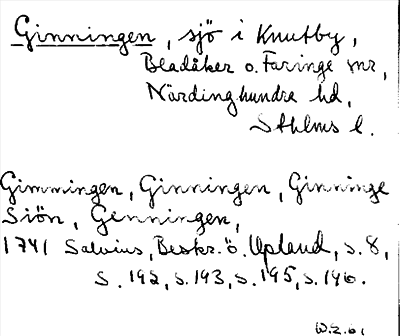 Ginningen, sjö i Knutby,
Bladåker o. Faringe snr,
Närdinghundra hd,
Sthlms l.
Gimmingen, Ginningen, Ginninge
Siön, Genningen,
1741 Salvius, Beskr. ö. Upland, s. 8,
s. 192, s. 193, s. 195, s. 196.